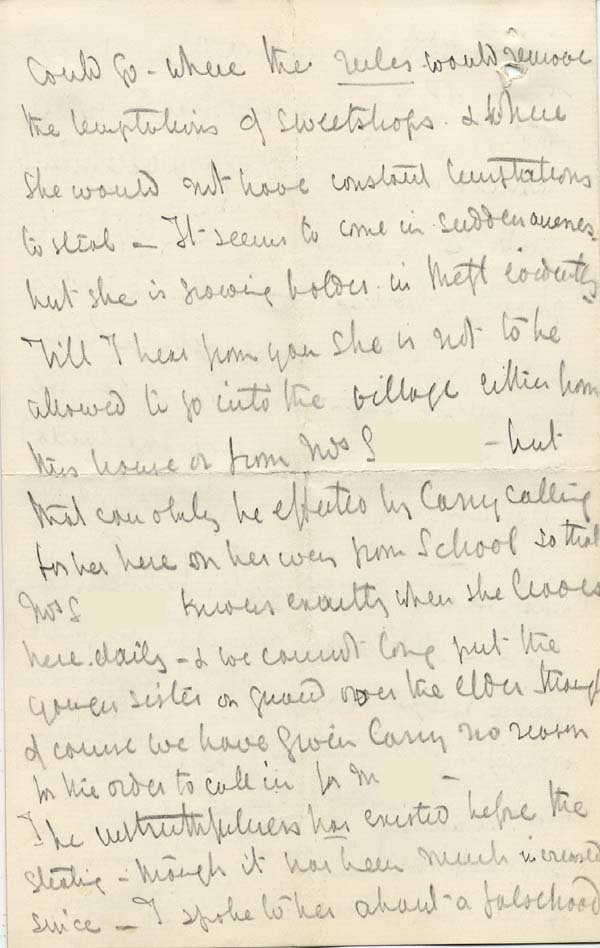 could go - where the rules would remove
the temptations of sweetshops - & where
she would not have constant temptations
to steal - It seems to come in suddenness
but she is growing bolder in theft evidently
Till I hear from you she is not to be
allowed to go into the village either from
this house or from Mrs S - but
that can only be effected by Carry calling
for her here on her way from School so that
Mrs S knows exactly when she leaves
here daily - & we cannot long put the
younger sister on guard over the elder though
of course we have given Carry no reason
for the order to call in for M -
The untruthfulness has existed before the
stealing - though it has been much increased
since - I spoke to her about a falsehood